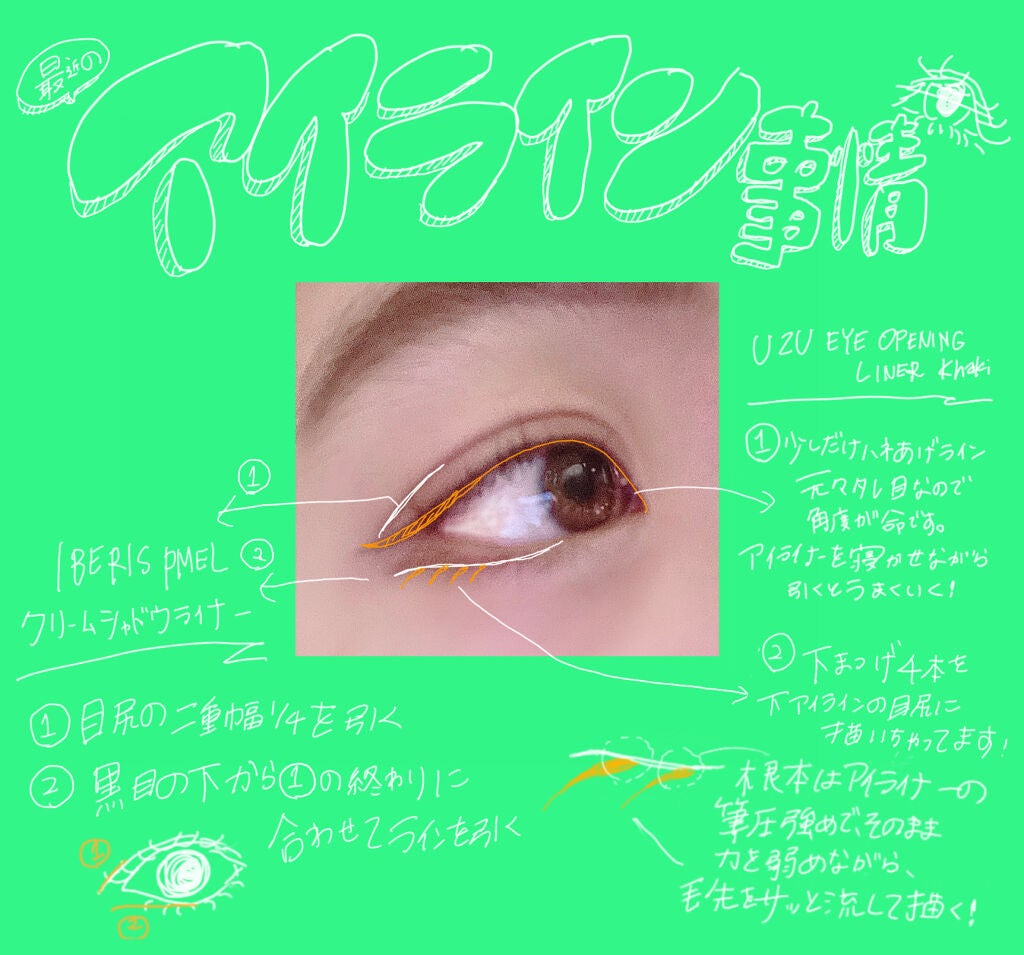 最近の
アイライン事情
UZU EYE OPENING
LINER Khaki
①少しだけハネあげライン
元々タレ目なので
角度が命です。
アイライナーを寝かせながら
引くとうまくいく!
②下まつげ4本を
下アイラインの目尻に
描いちゃってます!
根本はアイライナーの
筆圧強めで、そのまま
力を弱めながら、
毛先をサッと流して描く!
①
②
IBERIS PMEL
クリームシャドウライナー
①目尻の二重幅1/4を引く
②黒目の下から①の終わりに
合わせてラインを引く
①
②